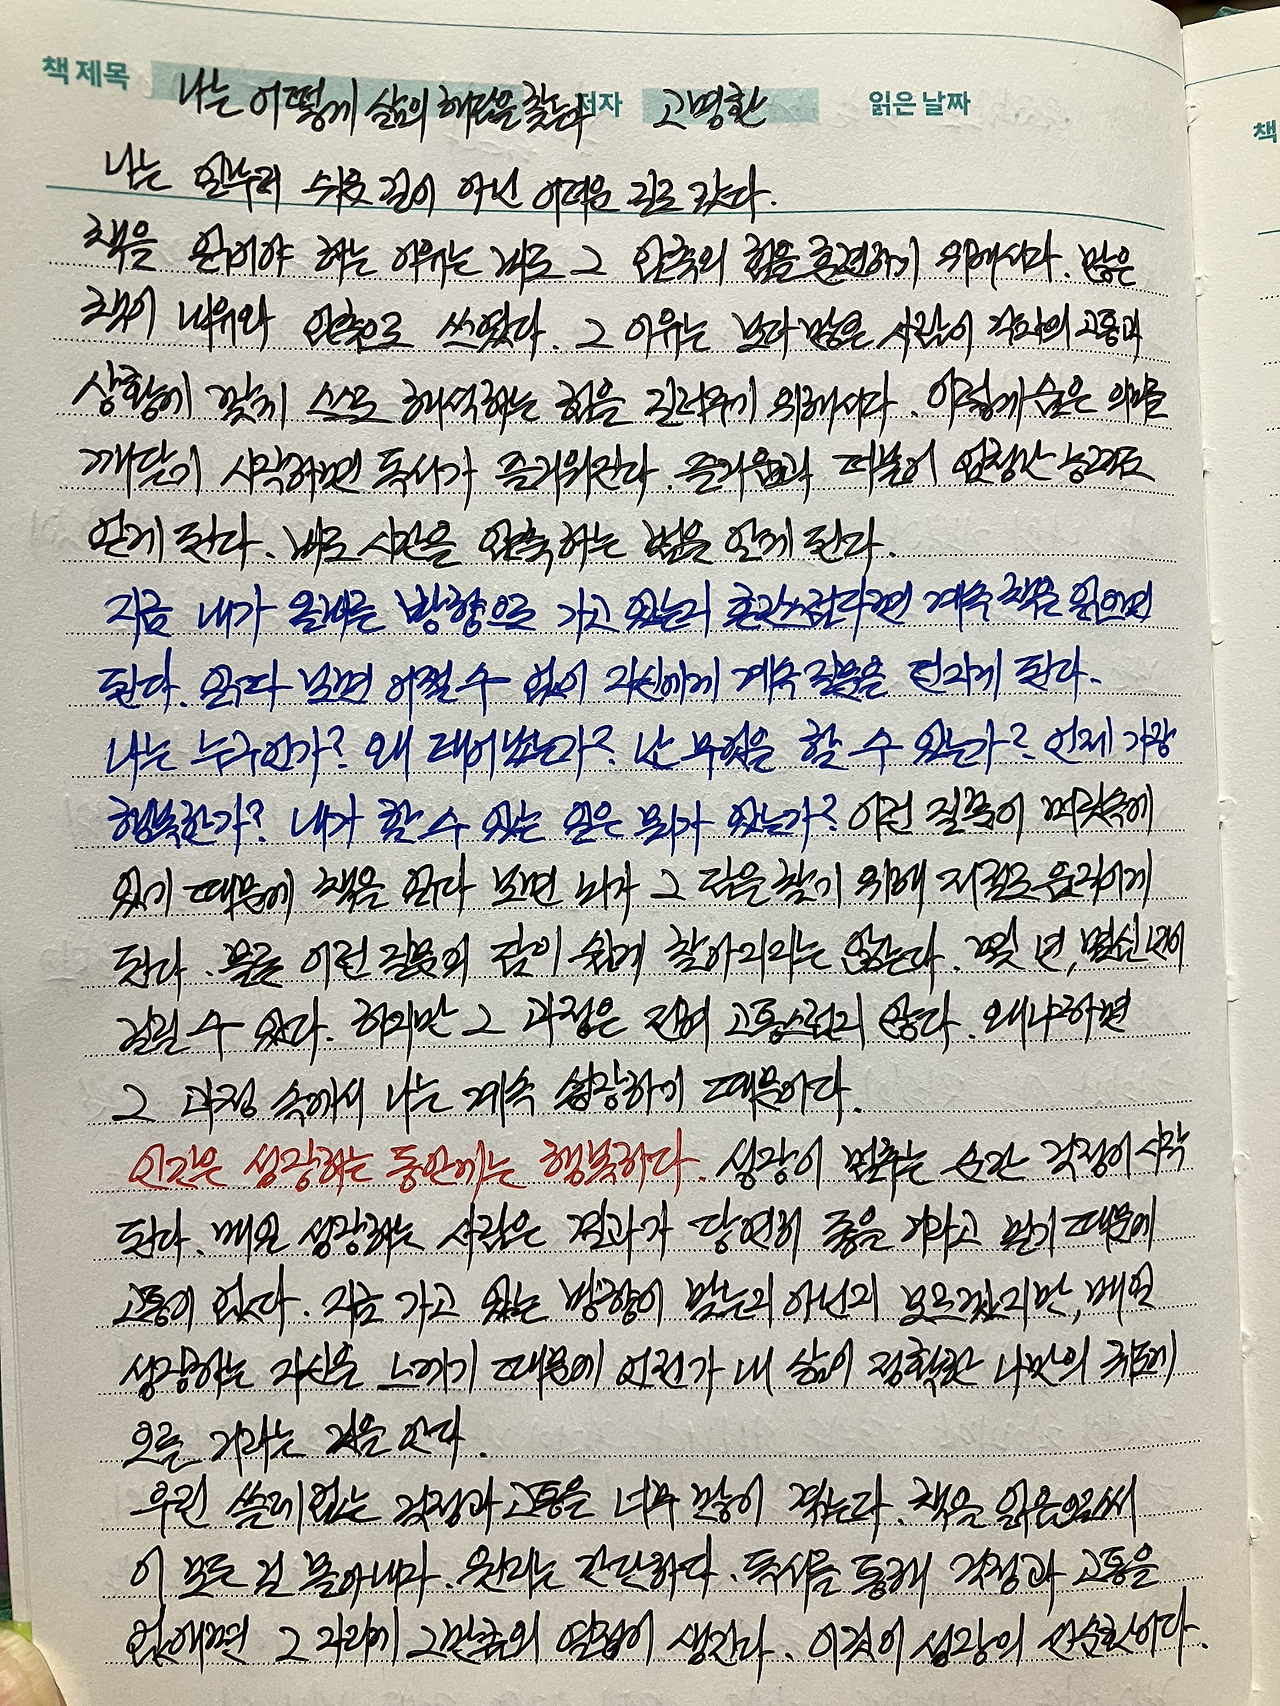 책 제목 나는 어떻게 삶의 해답을 찾는가 저자 고명환 읽은 날짜
나는 일부러 쉬운 길이 아닌 어려운 길로 갔다.
책을 읽어야 하는 이유는 바로 그 압축의 힘을 훈련하기 위해서다. 많은
책이 비유와 압축으로 쓰였다. 그 이유는 보다 많은 사람이 각자의 고통과
상황에 맞게 스스로 해석하는 힘을 길러주기 위해서다. 이렇게 숨은 의미를
깨닫기 시작하면 독서가 즐거워진다. 즐거움과 더불어 엄청난 능력도
얻게 된다. 바로 시간을 압축하는 법을 알게 된다.
지금 내가 올바른 방향으로 가고 있는지 혼란스럽다면 계속 책을 읽으면
된다. 읽다 보면 어쩔 수 없이 자신에게 계속 질문을 던지게 된다.
나는 누구인가? 왜 태어났는가? 난 무엇을 할 수 있는가? 언제 가장
행복한가? 내가 할 수 있는 일은 뭐가 있는가? 이런 질문이 머릿속에
있기 때문에 책을 읽다 보면 뇌가 그 답을 찾기 위해 저절로 움직이게
된다. 물론 이런 질문의 답이 쉽게 찾아지지는 않는다. 몇 년, 몇십 년이
걸릴 수 있다. 하지만 그 과정은 전혀 고통스럽지 않다. 왜냐하면
그 과정 속에서 나는 계속 성장하기 때문이다.
인간은 성장하는 동안에는 행복하다. 성장이 멈추는 순간 걱정이 시작
된다. 매일 성장하는 사람은 결과가 당연히 좋을 거라고 믿기 때문에
고통이 없다. 지금 가고 있는 방향이 맞는지 아닌지 모르겠지만, 매일
성장하는 자신을 느끼기 때문에 언젠가 내 삶이 정확한 나만의 궤도에
오를 거라는 것을 안다.
우린 쓸데없는 걱정과 고통을 너무 많이 겪는다. 책을 읽음으로써
이 모든 걸 몰아내자. 원리는 간단하다. 독서를 통해 걱정과 고통을
없애면 그 자리에 그만큼의 열정이 생긴다. 이것이 성장의 선순환이다.